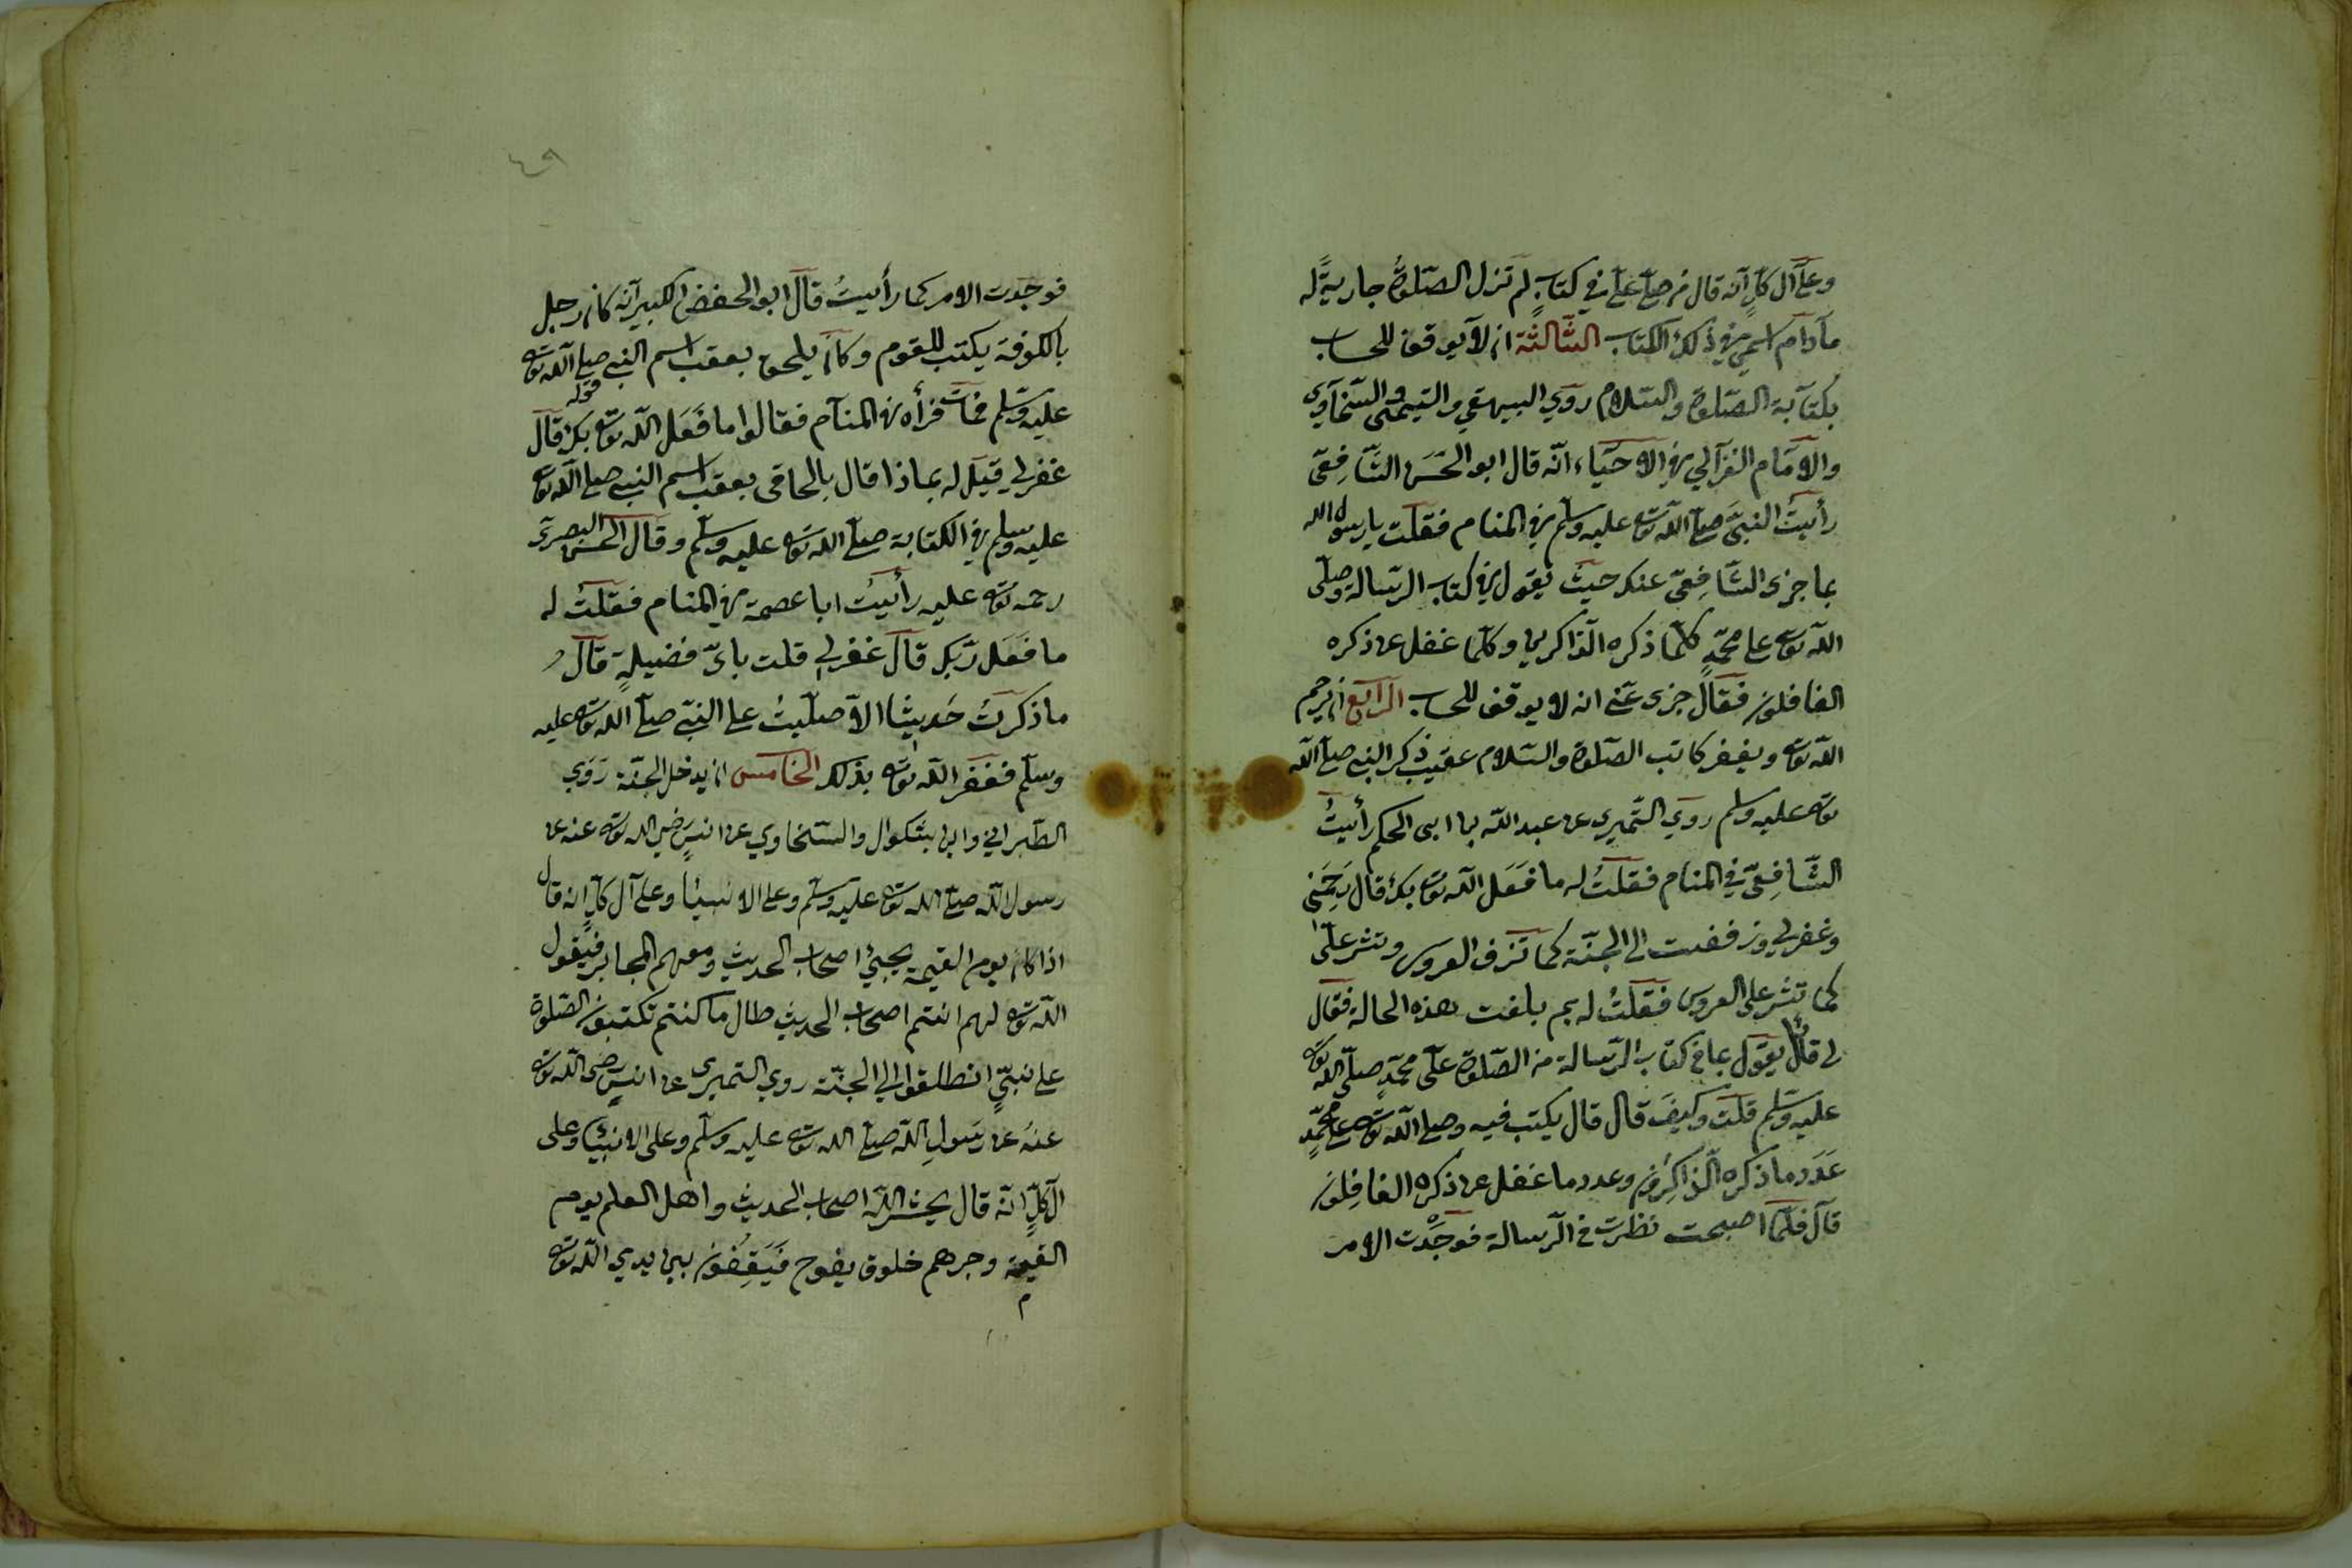 وعلى آل كلٍّ انه قال من صلى علي في كتابٍ لم تزل الصّلوةُ جاريةً له
مادام اسمي في ذلك الكتاب الثّالثة ان لا يوقف للحساب
بكتابة الصّلوة والسّلام روي البيهقي والتيمي والسّخاوي
والامام الغزالي في الاحياء انّه قال ابو الحسن الشّافعيّ
رأيتُ النبيّ صلى الله تع عليه وسلم في المنام فقلت يا رسول الله
بما جزى الشّافِعيّ عنك حيث يقول في كتاب الرّسالة وصلّى
الله تع على محمّدٍ كلّما ذكره الذّاكرين وكلّما غفل عن ذكره
الغافلون فقال جزى عنّي انه لا يوقف للحساب الرّابع ان يرحم
الله تع ويغفر كاتب الصّلوة والسّلام عقيب ذكر النبي صلى الله
تع عليه وسلم روي النّميري عن عبد الله بن ابى الحكم رأيتُ
الشّافِعيّ في المنام فقلتُ له ما فَعَل الله تع بك قال رَحِمَني
وغفر لي وزففت الى الجنّة كما تزف العروس وتنثر عليّ
كما تنثر على العروس فقلتُ له بم بلغت هذه الحالة فقال
لي قائل يقول بما في كتاب الرّسالة من الصّلوة على محمّدٍ صلّى الله تع
عليه وسلم قلت وكيفَ قال قال يكتب فيه وصلى الله تع على محمّدٍ
عَدَد ما ذكره الذّاكِرُون وعدد ما غفل عن ذكره الغافِلون
قال فلمّا اصبحت نظرت في الرّسالة فوجدت الامر
٤٩
فوجَدت الامر كما رأيتُ قال ابو الحفض الكبير انه كان رجل
بالكوفة يكتب للقوم وكان يلحق بعقب اسم النبي صلى الله تع
عليه وسلم فمات فرأه في المنام فقالوا ما فَعَل الله تع بك قال
غفر لي قيل له بماذا قال بالحاقى بعقب اسم النبي صلى الله تع
عليه وسلم في الكتابة صلّى الله تع عليه وسلّم وقال الحسن البصريّ
رحمه تع عليه رأيتُ ابا عصمة في المنام فقلتُ له
ما فَعَل ربّك قال غفر لي قلت بايّ فضيلةٍ قال
ما ذكرتُ حَديثا الاّ صلّيتُ على النبيّ صلى الله تع عليه
وسلّم فغفر الله تع بذلك الخامس ان يدخل الجنّة رَوَي
الطّبراني وابن بشكوال والسّخاوي عن انسٍ رضي الله تع عنه عن
رسول الله صلى الله تع عليه وسلّم وعلى الانبيا وعلى آل كلٍّ انه قال
اذا كان يوم القيمة يجيئ اصحاب الحديث ومعهم المحابر فيقول
الله تع لهم انتم اصحاب الحديث طال ما كنتم تكتبون الصّلوة
على نبيّي انطلقوا الى الجنّة روي النّميرى عن انسٍ رضى الله تع
عنهُ عن رَسولِ الله صلى الله تع عليه وسلّم وعلى الانبيا وعلى
آل كلٍّ انّه قال يحشر الله اصحاب الحديث واهل العلم يوم
القيمة وجرهم خلوق يفوح فَيَقِفُون بين يدي الله تع